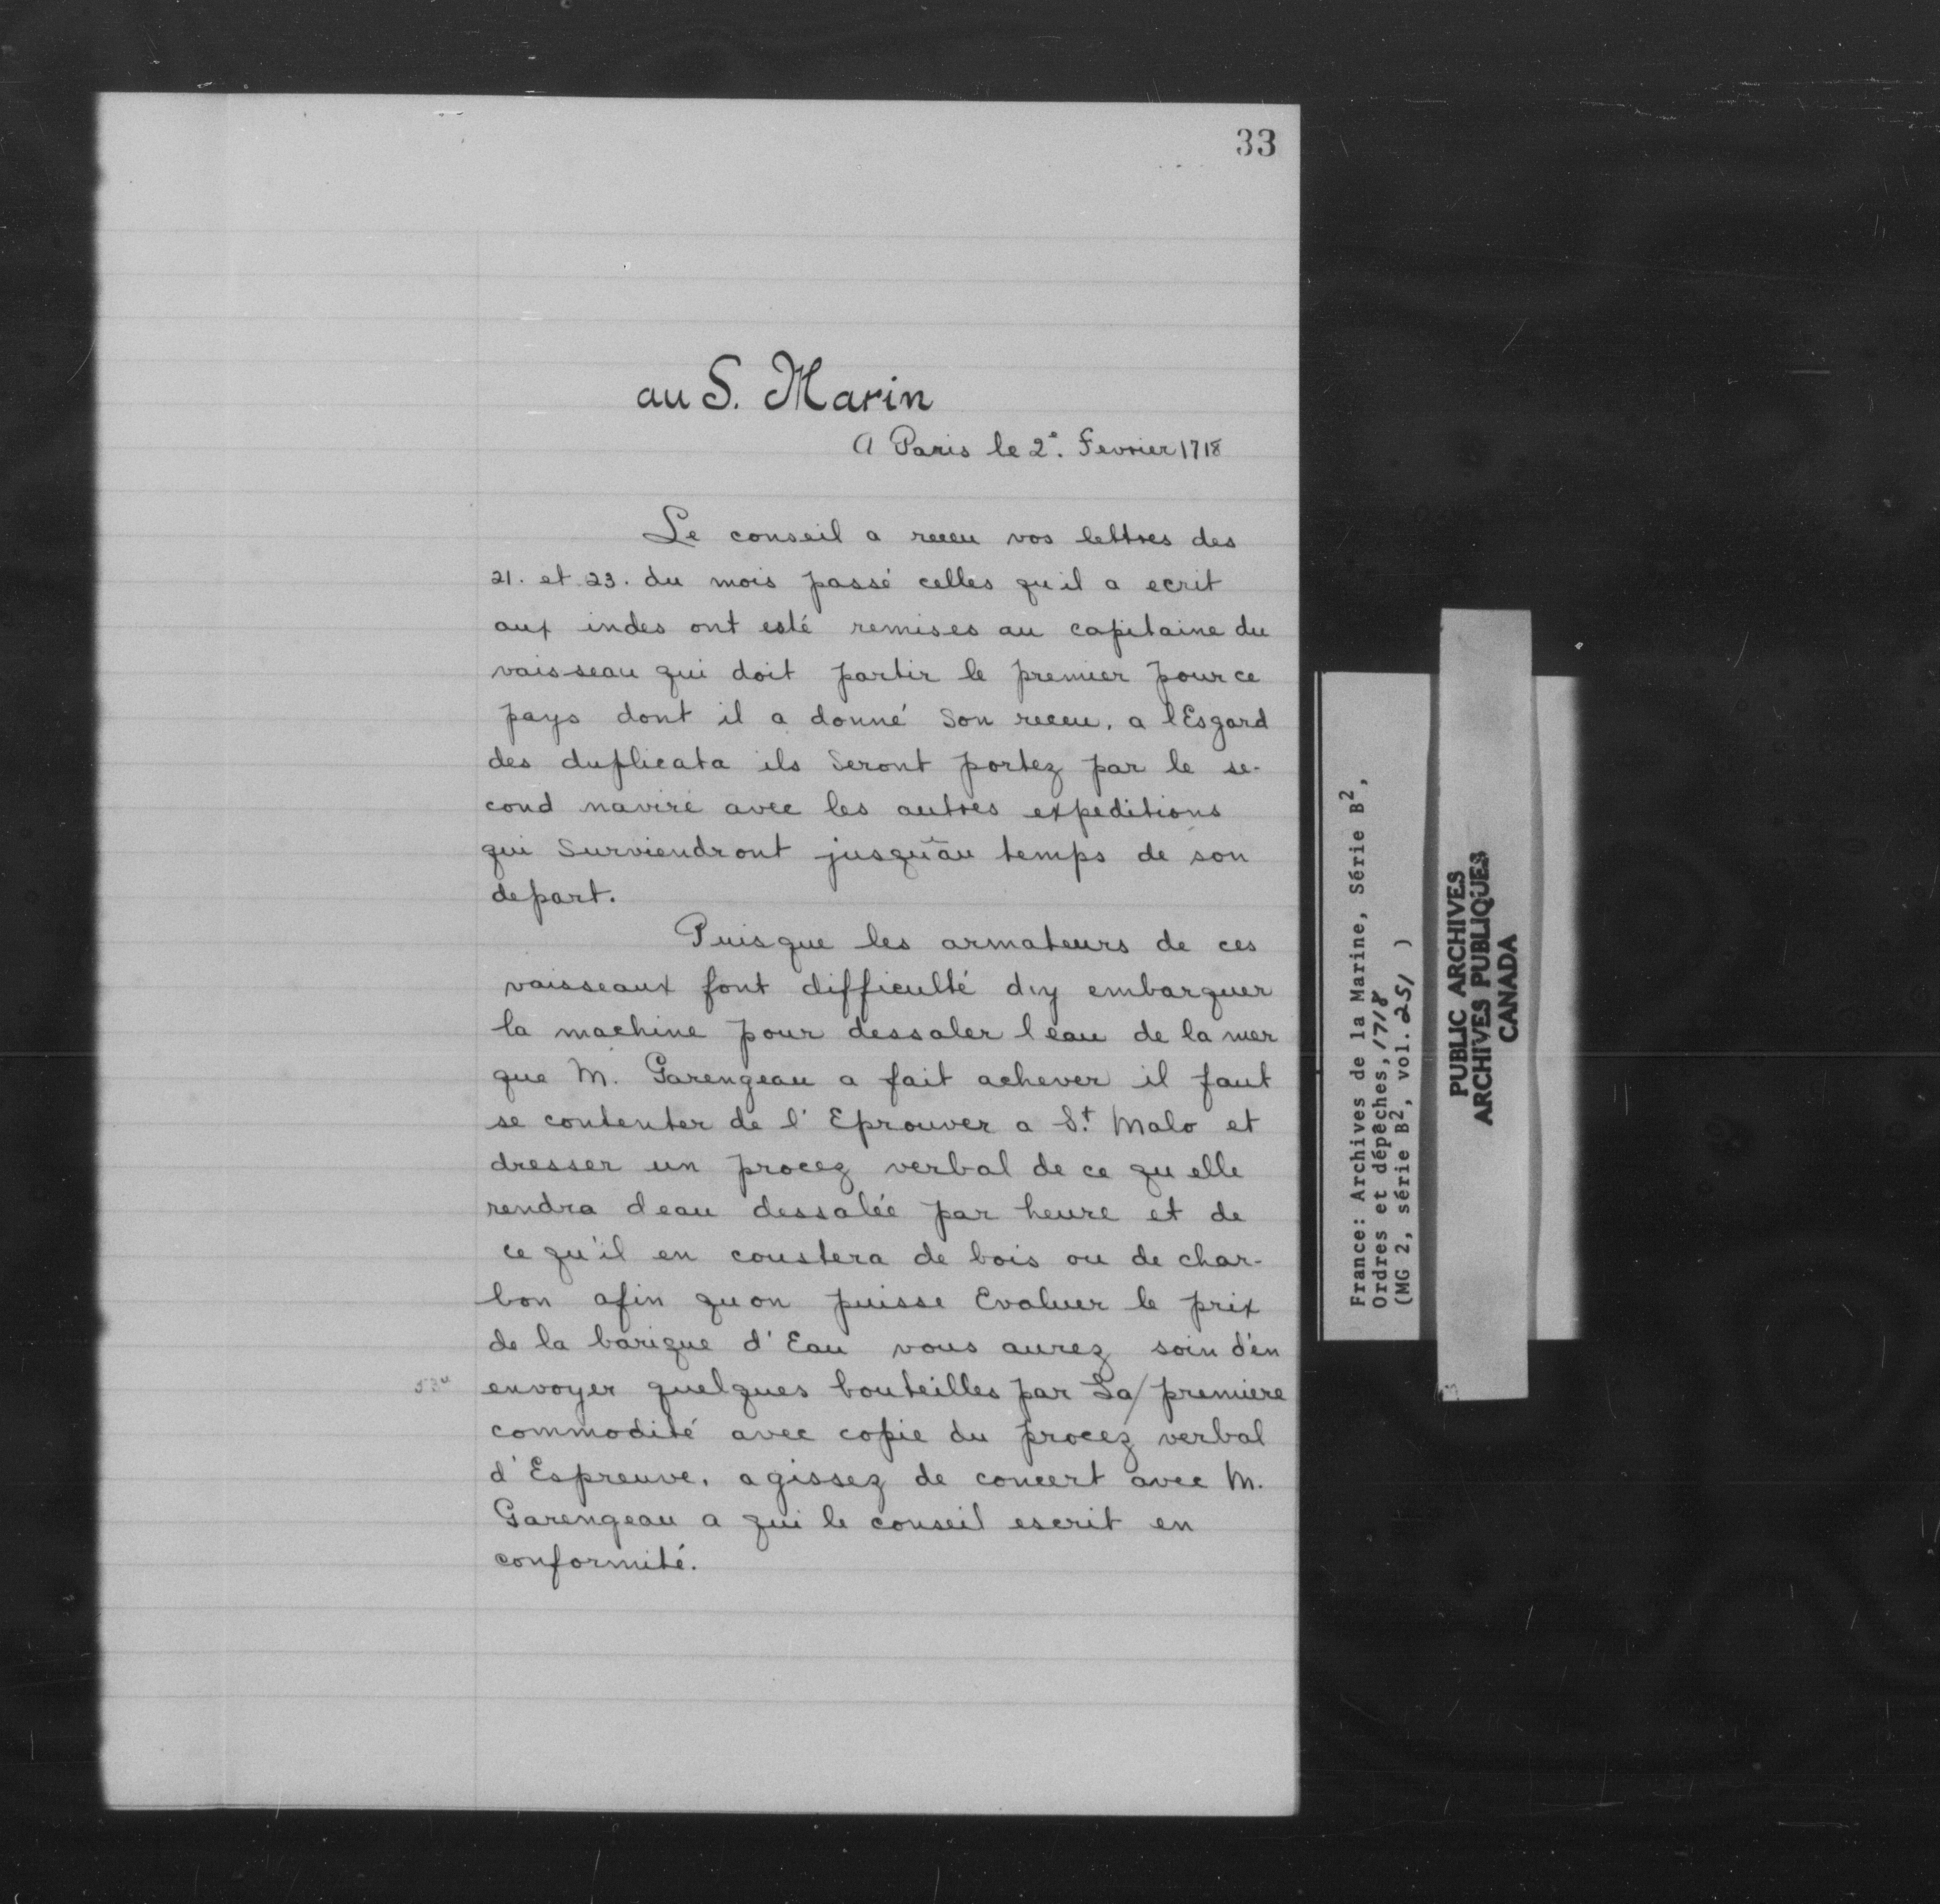 33
au S. Marin
A Paris le 2e. Fevrier 1718
Le conseil a receu vos lettres des
21. et 23. du mois passé celles qu'il a ecrit
aux indes ont esté remises au capitaine du
vaisseau qui doit partir le premier pour ce
pays dont il a donné Son receu. a l'Esgard
des duplicata ils Seront portez par le se-
cond navire avec les autres expeditions
qui Surviendront jusqu'au temps de son
depart.
Puisque les armateurs de ces
vaisseaux font difficulté d'y embarquer
la machine pour dessaler l'eau de la mer
que M. Garengeau a fait achever il faut
se contenter de l'Eprouver a St. Malo et
dresser un procez verbal de ce qu elle
rendra d'eau dessalée par heure et de
ce qu'il en coustera de bois ou de char-
bon afin qu on puisse Evaluer le prix
de la barique d'Eau vous aurez soin d'en
envoyer quelques bouteilles par La/premiere
commodité avec copie du procez verbal
d'Espreuve. agissez de concert avec M.
Garengeau a qui le conseil escrit en
conformité.
France: Archives de la Marine, Série B2,
Ordres et dépêches, 1718
(MG 2, série B2, vol. 251 )
PUBLIC ARCHIVES
ARCHIVES PUBLIQUES
CANADA